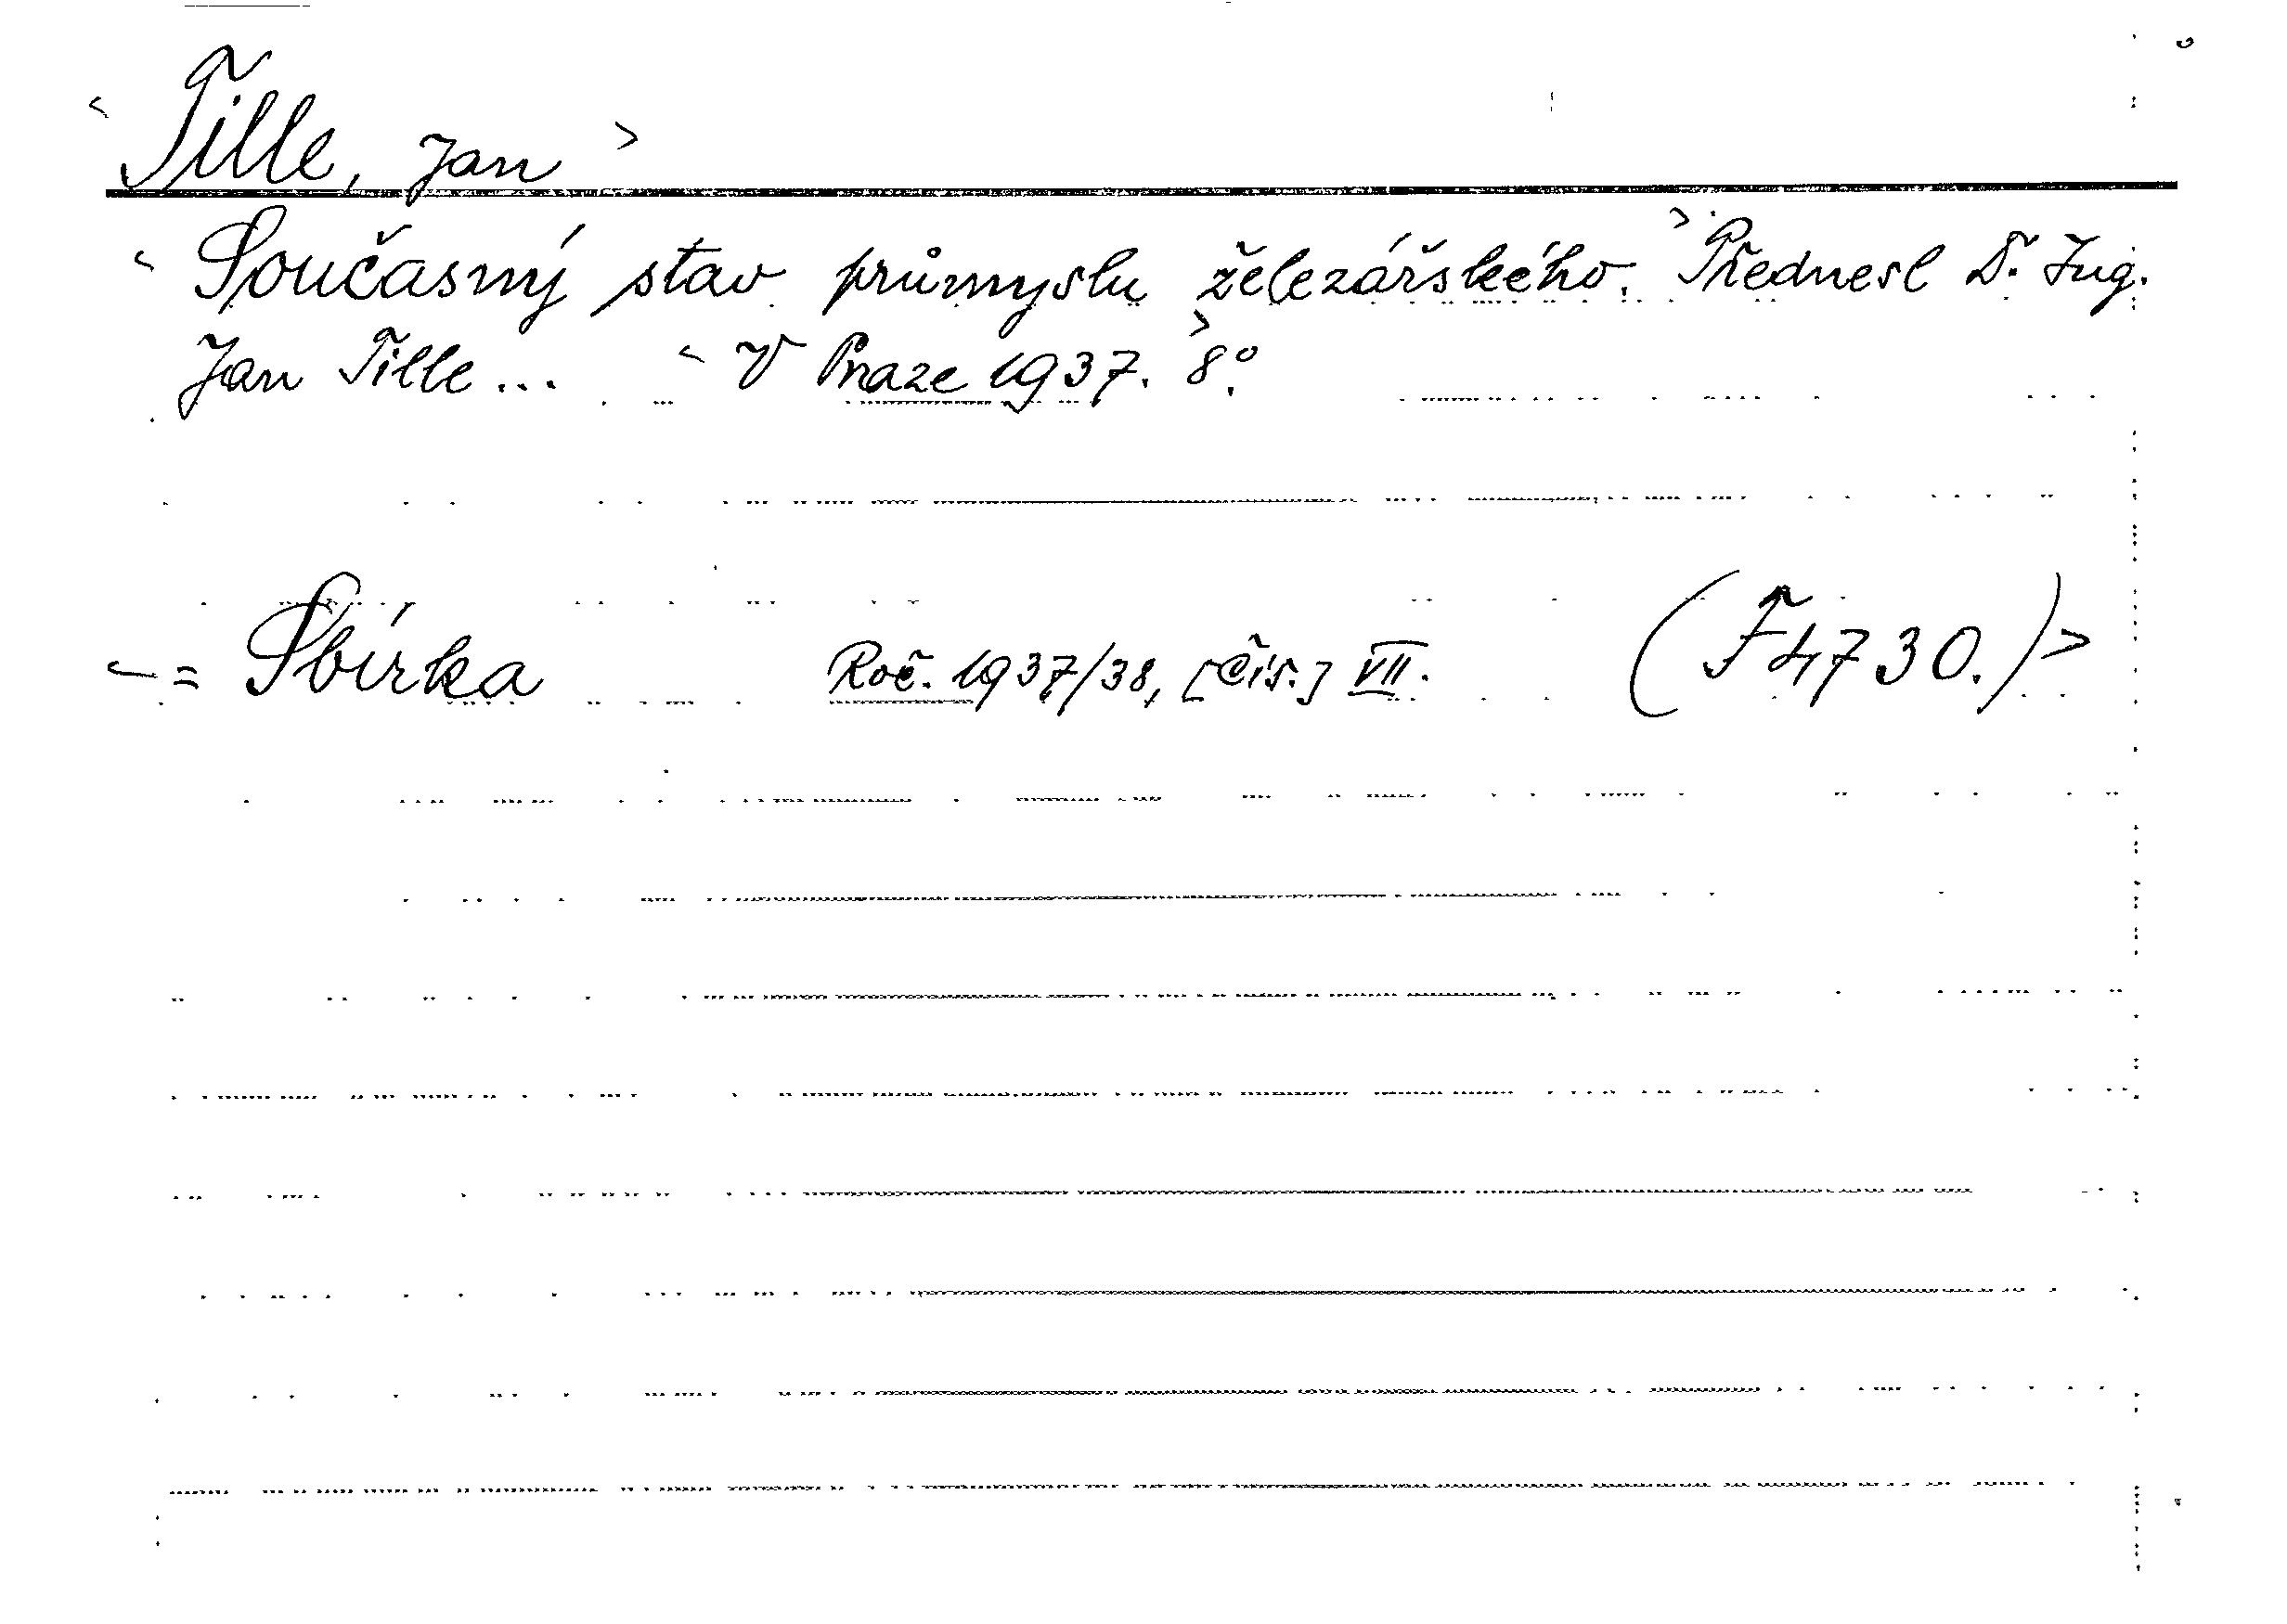 < Tille, Jan >
< Současný stav průmyslu železářského. > Přednesl Dr. Ing.
Jan Tille ... < V Praze 1937. > 8°.
< = Sbírka Roč. 1937/38, [čís.] VII. (F 4730.) >